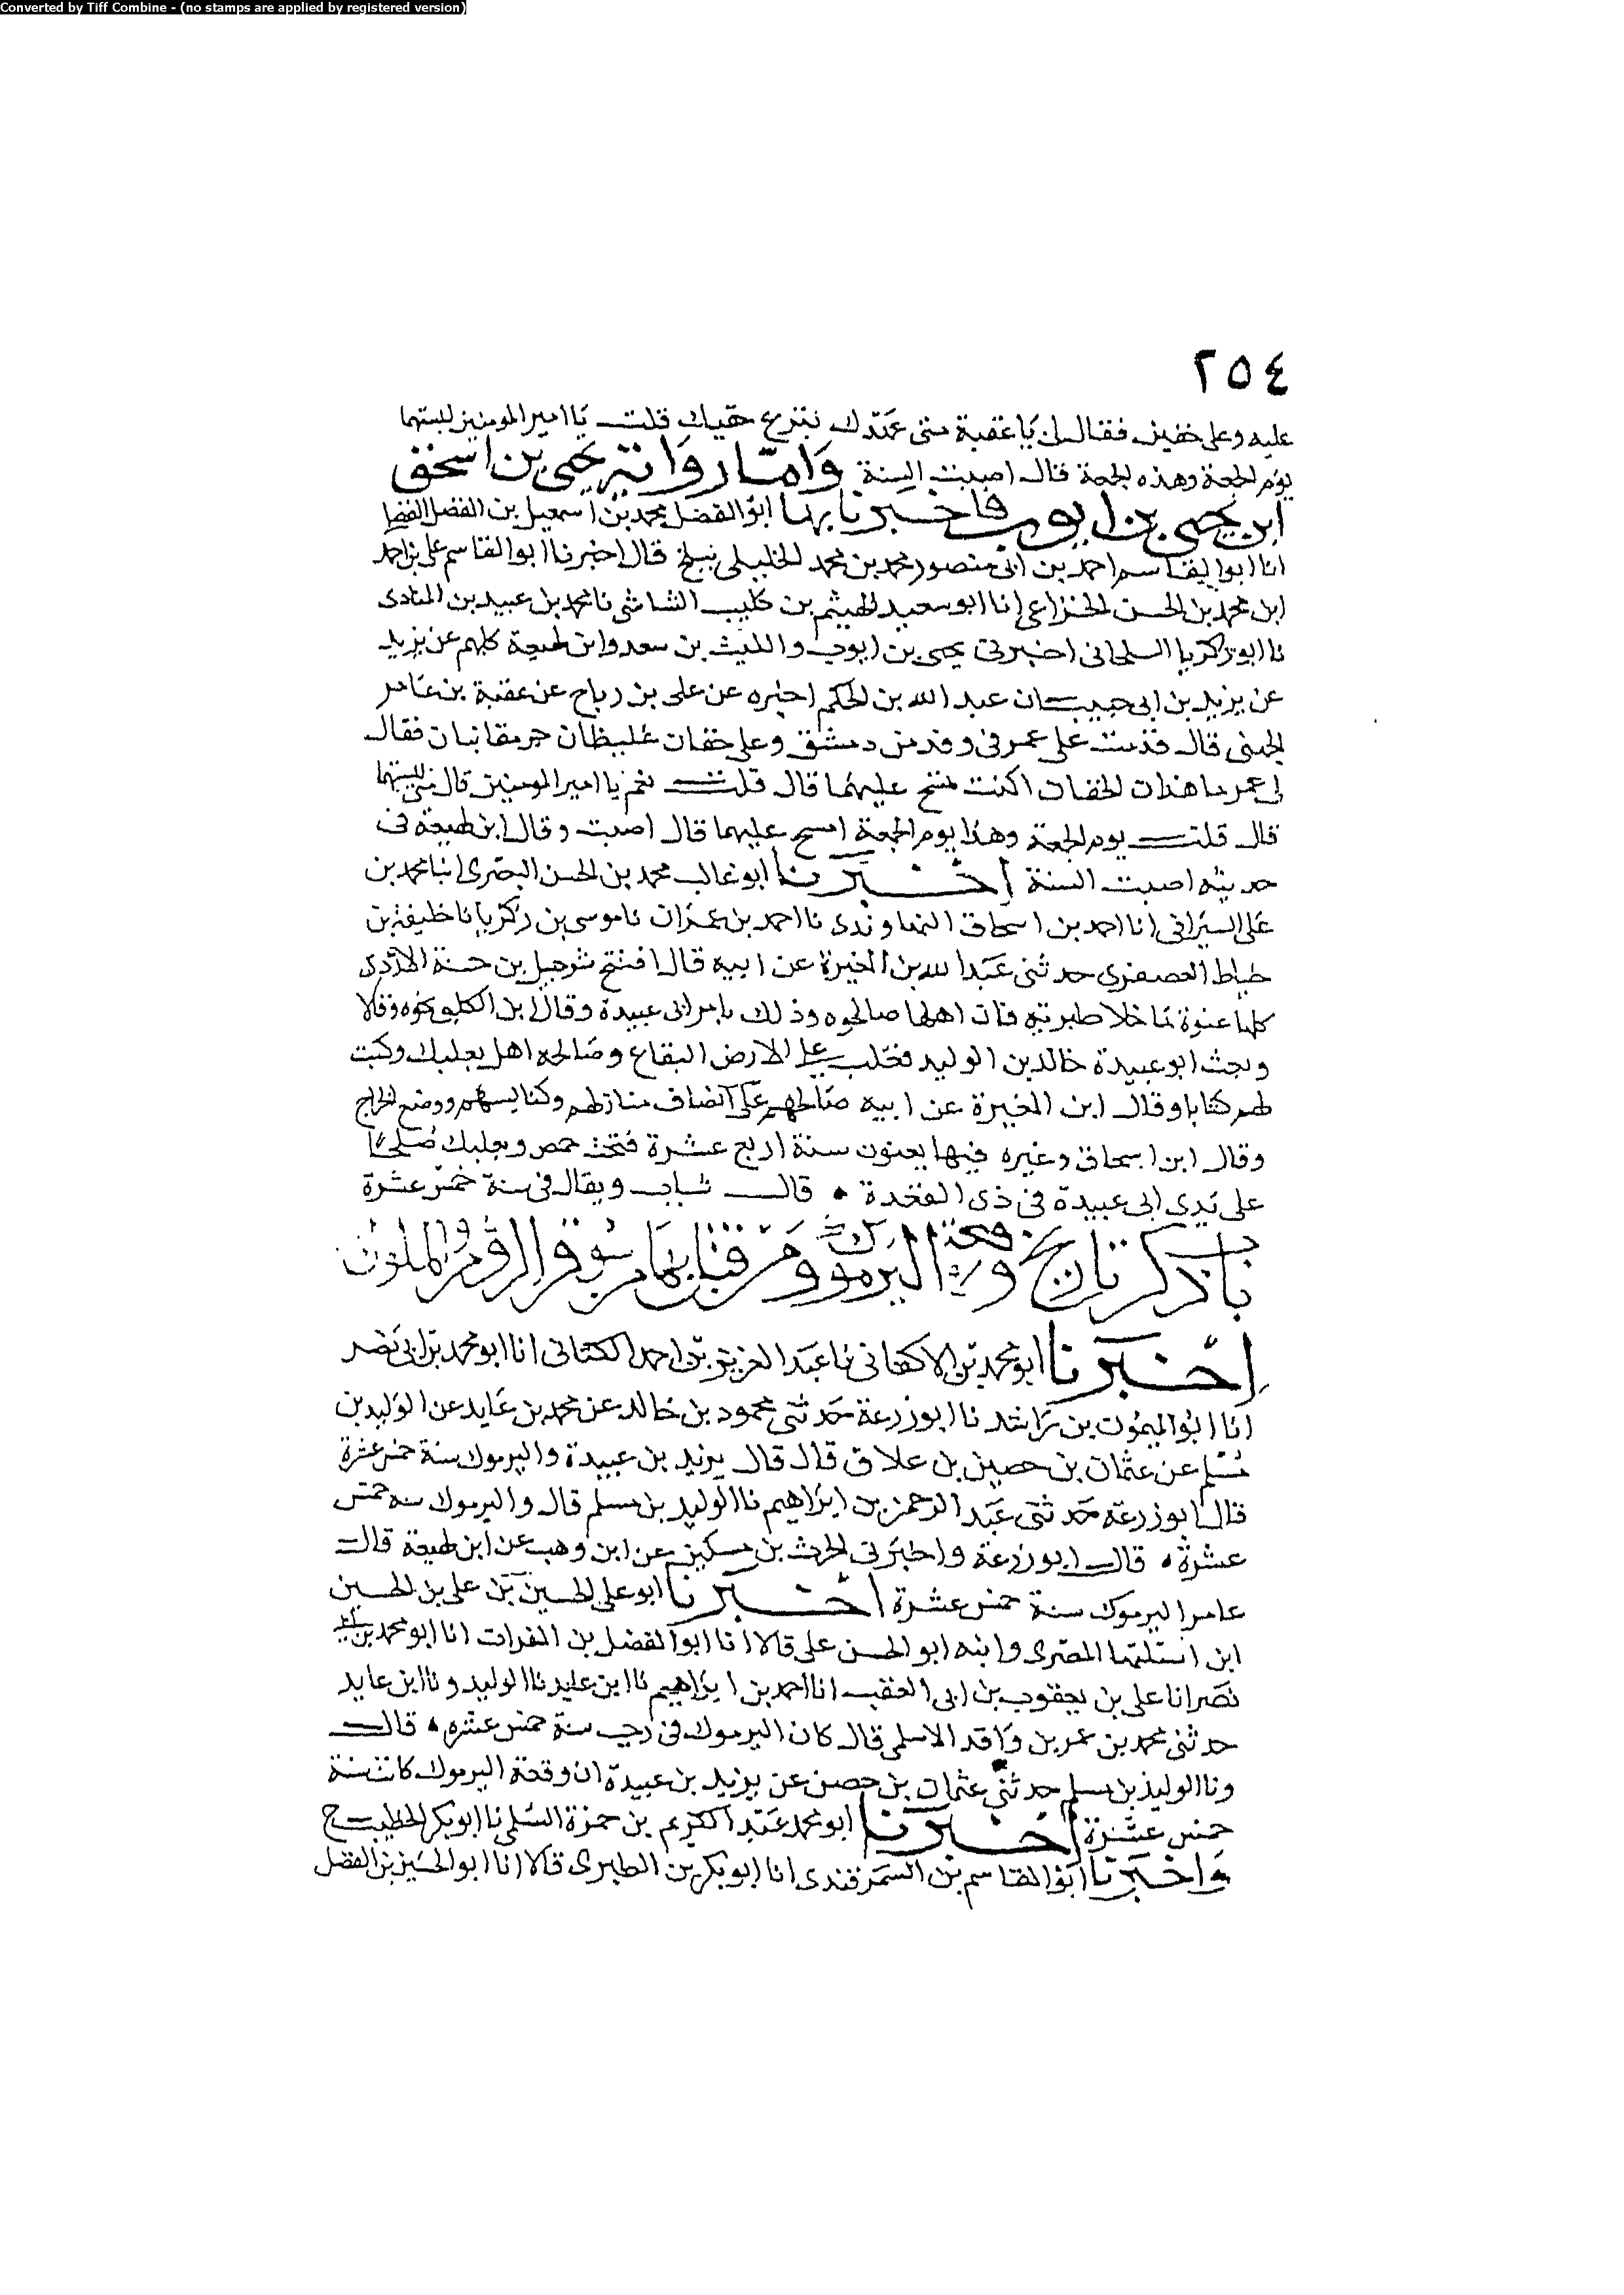 Converted by Tiff Combine - (no stamps are applied by registered version)
٢٥٤
عليه وعلى خفين فقال لي يا عقبة متى عهدك بنزع خفيك قلت يا امير المومنين لبستهما
يوم الجمعة وهذه الجمعة قال اصبت السنة وامّا رواية يحيى بن اسحق
ابن يحيى بن ايوب فاخبرنا بها ابو الفضل محمد بن اسمعيل بن الفضل الفضيلي
انا ابو القاسم احمد بن ابي منصور محمد بن محمد الخليلي ببلخ قال اخبرنا ابو القاسم علي بن احمد
ابن محمد بن الحسن الخزاعي انا ابو سعيد الهيثم بن كليب الشاشي نا محمد بن عبيد بن المنادى
نا ابو زكريا السلحاني اخبرني يحيى بن ايوب والليث بن سعد وابن لهيعة كلهم عن يزيد
عن يزيد بن ابي حبيب ان عبد الله بن الحكم اخبره عن علي بن رباح عن عقبة بن عامر
الجهني قال قدمت على عمر في وفد من دمشق وعلي خفان غليظان جرمقانيان فقال
لي عمر ما هذان الخفان اكنت تمسح عليهما قال قلت نعم يا امير المومنين قال متى لبستهما
قال قلت يوم الجمعة وهذا يوم الجمعة امسح عليهما قال اصبت وقال ابن لهيعة في
حديثه اصبت السنة اخبرنا ابو غالب محمد بن الحسن البصرى انبا محمد بن
علي السيرافي انا احمد بن اسحاق النهاوندى نا احمد بن عمران نا موسى بن زكريا نا خليفة بن
خياط العصفري حدثني عبد الله بن المغيرة عن ابيه قال افتتح شرحبيل بن حسنة الاردن
كلها عنوة ما خلا طبرية فان اهلها صالحوه وذلك بامر ابي عبيدة وقال ابن الكلبي نحوه وقالا
وبعث ابو عبيدة خالد بن الوليد فغلب على الارض البقاع وصالحه اهل بعلبك وكتب
لهم كتابا وقال ابن المغيرة عن ابيه صالحهم على انصاف منازلهم وكنايسهم ووضع الخراج
وقال ابن اسحاق وغيره فيها يعنون سنة اربع عشرة فتحت حمص وبعلبك صلحا
على يدي ابي عبيدة في ذي القعدة • قال شباب ويقال في سنة خمس عشرة
باب ذكر تاريخ وقعة اليرموك ومن قتل بها من سوقة الروم والملوك
اخبرنا ابو محمد بن الاكفاني نا عبد العزيز بن احمد الكتاني انا ابو محمد بن ابي نصر
انا ابو الميمون بن راشد نا ابو زرعة حدثني محمود بن خالد عن محمد بن عايد عن الوليد بن
مسلم عن عثمان بن حصين بن علاق قال قال يزيد بن عبيدة واليرموك سنة خمس عشرة
قال ابو زرعة حدثني عبد الرحمن بن ابراهيم نا الوليد بن مسلم قال واليرموك سنة خمس
عشرة • قال ابو زرعة واخبرني الحرث بن مسكين عن ابن وهب عن ابن لهيعة قال
عام اليرموك سنة خمس عشرة اخبرنا ابو علي الحسين بن علي بن الحسين
ابن اشليها المصرى وابنه ابو الحسن علي قالا انا ابو الفضل بن الفرات انا ابو محمد بن ابي
نصر انا علي بن يعقوب بن ابي العقب انا احمد بن ابراهيم نا ابن عايد نا الوليد ونا ابن عايد
حدثني محمد بن عمر بن واقد الاسلمي قال كان اليرموك في رجب سنة خمس عشره • قال
ونا الوليد بن مسلم حدثني عثمان بن حصن عن يزيد بن عبيدة ان وقعة اليرموك كانت سنة
خمس عشرة اخبرنا ابو محمد عبد الكريم بن حمزة السلمي نا ابو بكر الخطيب ح
واخبرنا ابو القاسم بن السمرقندى انا ابو بكر بن الطبرى قالا انا ابو الحسين بن الفضل